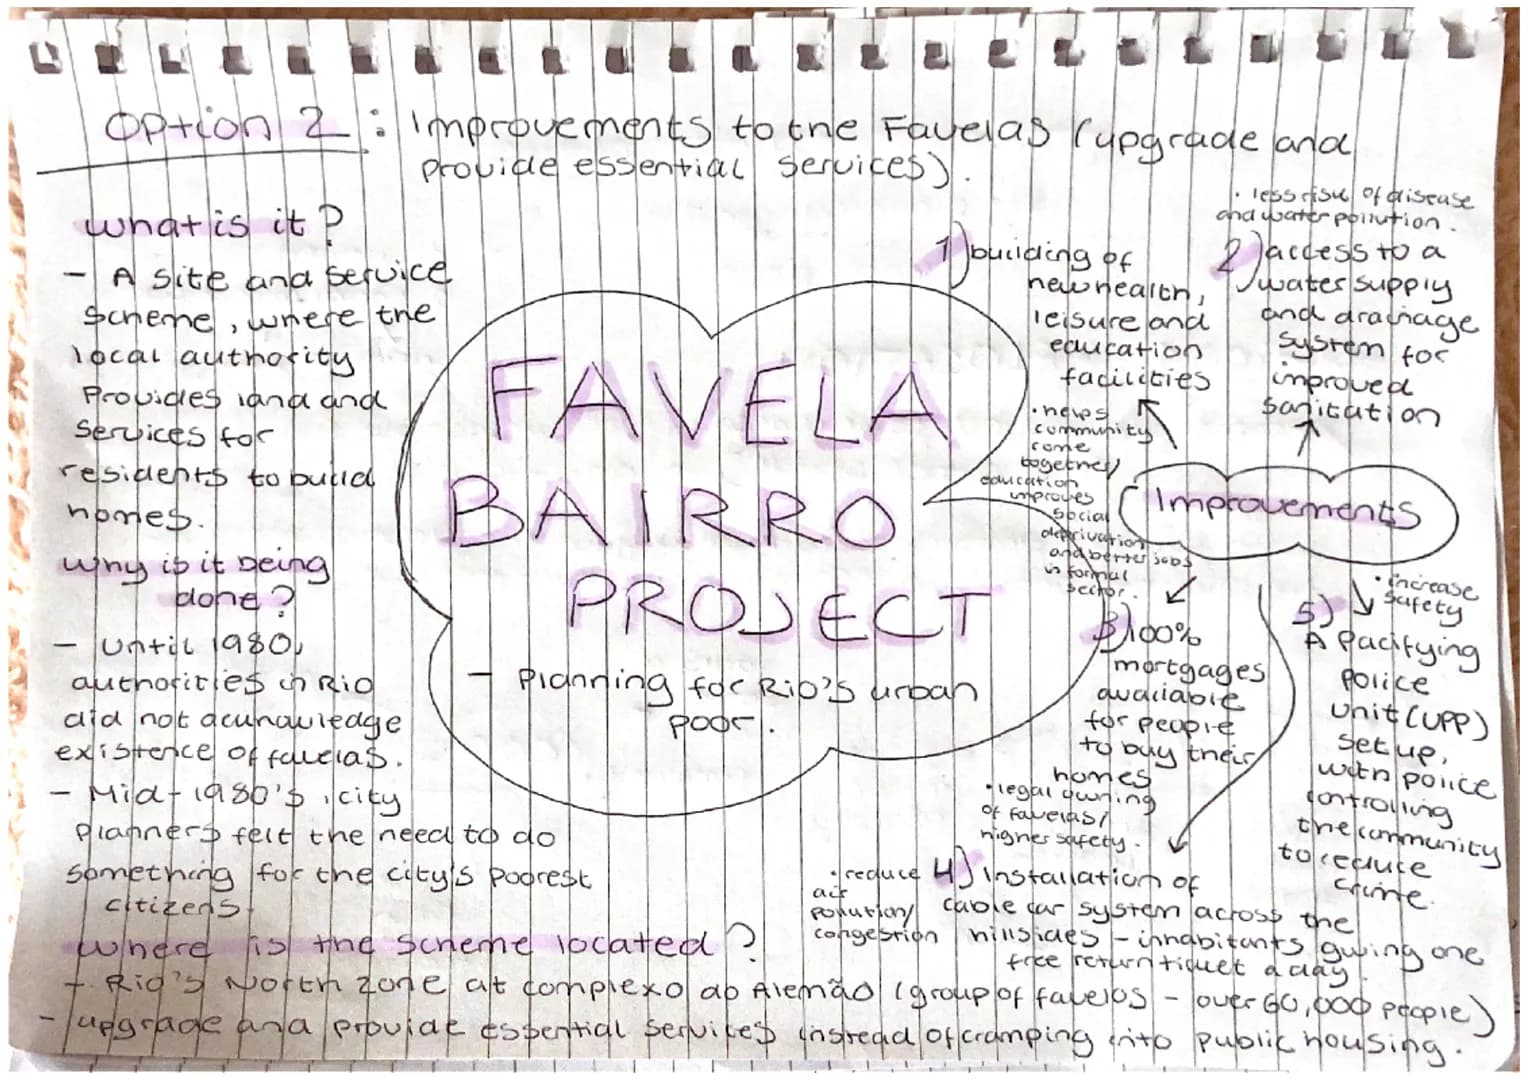 Option 2 : Improvements to the Favelas (upgrade and
provide essential services).
what is it?
- A site and service
scheme, where the
local authority
Provides land and
services for
residents to build
homes.
why is it being
done?
- Until 1980,
authorities in Rio
did not acunawledge
existence of favelas.
- Mid-1980's, city
planners felt the need to do
something for the city's poorest
citizens
where is the scheme located?
- Rio's North zone at complexo do Alemão (group of favelas - over 60,000 people)
- upgrade and provide essential services instead of cramping into public housing.
FAVELA
BAIRRO
PROJECT
- Planning for Rio's urban
poor.
Improvements
1) building of
new health,
leisure and
education
facilities
• helps
community
come
together/
education
improves
social
deprivation
and better jobs
in formal
sector.
• less risk of disease
and water pollution.
2) access to a
water supply
and drainage
system for
improved
sanitation
3) 100%
mortgages
available
for people
to buy their
homes
• legal owning
of favelas/
higher safety.
• reduce
air
pollution/
congestion
4) Installation of
cable car system across the
hillsides - inhabitants giving one
free return ticket a day.
• increase
safety
5)
A Pacifying
police
unit (UPP)
set up,
with police
controlling
the community
to reduce
crime.